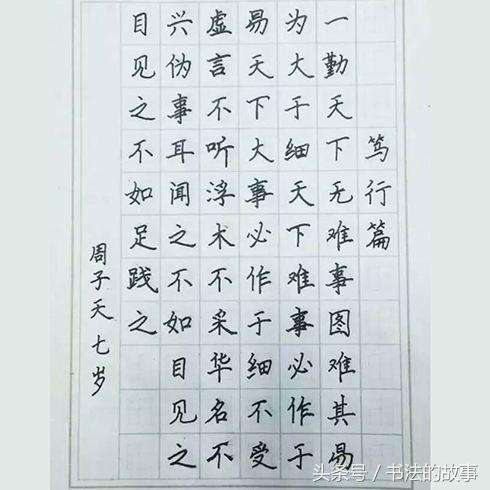 笃行篇
一勤天下无难事图难其易
为大于细天下难事必作于
易天下大事必作于细不受
虚言不听浮术不采华名不
兴伪事耳闻之不如目见之
目见之不如足践之
周子天七岁
头条号 / 书法的故事